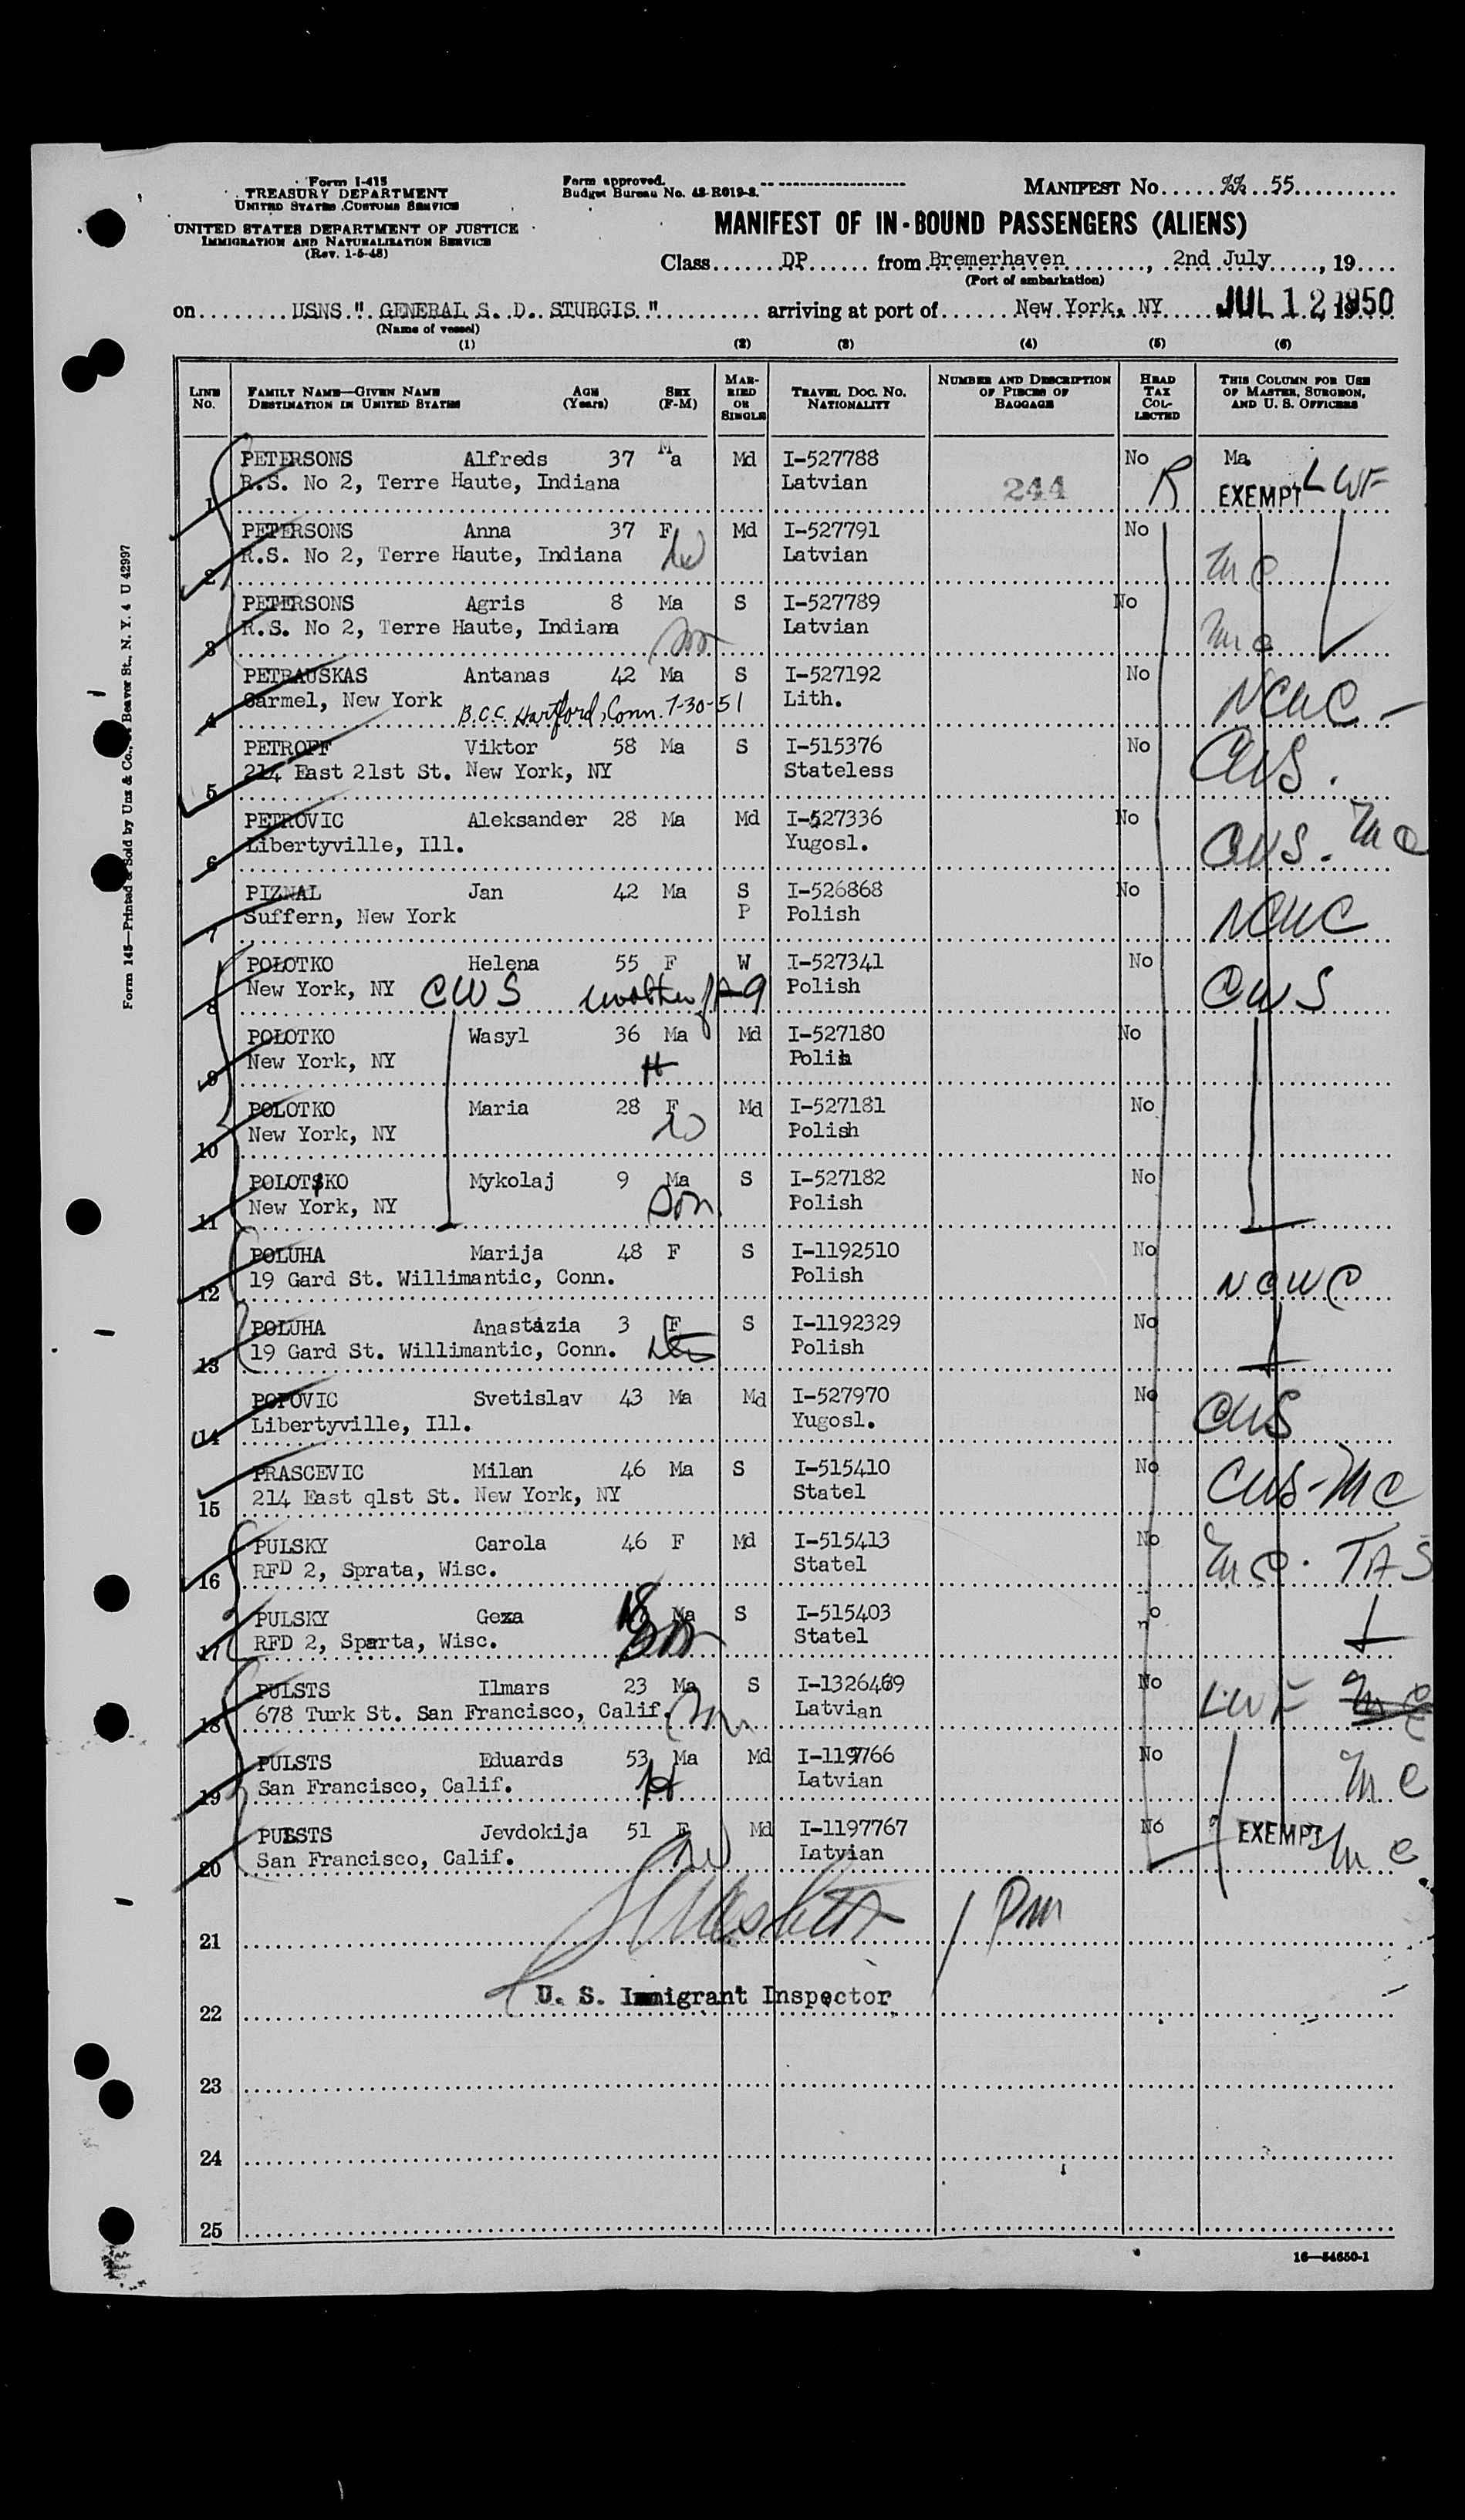 Form I-415
TREASURY DEPARTMENT
UNITED STATES CUSTOMS SERVICE
UNITED STATES DEPARTMENT OF JUSTICE
IMMIGRATION AND NATURALIZATION SERVICE
(Rev. 1-5-48)
Form approved.
Budget Bureau No. 43-R019-3.
MANIFEST No. 55
MANIFEST OF IN-BOUND PASSENGERS (ALIENS)
Class DP from Bremerhaven, 2nd July, 19
(Port of embarkation)
on USNS " GENERAL S. D. STURGIS " arriving at port of New York, NY JUL 12 1950
(Name of vessel)
(1) (2) (3) (4) (5) (6)
LINE No. FAMILY NAME—GIVEN NAME DESTINATION IN UNITED STATES AGE (Years) SEX (F-M) MARRIED OR SINGLE TRAVEL DOC. NO. NATIONALITY NUMBER AND DESCRIPTION OF PIECES OF BAGGAGE HEAD TAX COLLECTED THIS COLUMN FOR USE OF MASTER, SURGEON, AND U. S. OFFICERS
1 PETERSONS Alfreds 37 Ma Md I-527788 No Ma
R.S. No 2, Terre Haute, Indiana Latvian 244 R EXEMPT LWF
2 PETERSONS Anna 37 F Md I-527791 No
R.S. No 2, Terre Haute, Indiana W Latvian mc
3 PETERSONS Agris 8 Ma S I-527789 No
R.S. No 2, Terre Haute, Indiana son Latvian mc
4 PETRAUSKAS Antanas 42 Ma S I-527192 No
Carmel, New York B.C.C. Hartford, Conn. 7-30-51 Lith. NCWC -
5 PETROFF Viktor 58 Ma S I-515376 No
214 East 21st St. New York, NY Stateless CWS.
6 PETROVIC Aleksander 28 Ma Md I-527336 No
Libertyville, Ill. Yugosl. CWS. mc
7 PIZNAL Jan 42 Ma S I-526868 No
Suffern, New York P Polish NCWC
8 POLOTKO Helena 55 F W I-527341 No
New York, NY CWS mother of 9 Polish CWS
9 POLOTKO Wasyl 36 Ma Md I-527180 No
New York, NY H Polish
10 POLOTKO Maria 28 F Md I-527181 No
New York, NY W Polish
11 POLOTSKO Mykolaj 9 Ma S I-527182 No
New York, NY son Polish
12 POLUHA Marija 48 F S I-1192510 No
19 Gard St. Willimantic, Conn. Polish NCWC
13 POLUHA Anastazia 3 F S I-1192329 No
19 Gard St. Willimantic, Conn. Polish
14 POPOVIC Svetislav 43 Ma Md I-527970 No
Libertyville, Ill. Yugosl. CWS
15 PRASCEVIC Milan 46 Ma S I-515410 No
214 East qlst St. New York, NY Statel CWS-mc
16 PULSKY Carola 46 F Md I-515413 No
RFD 2, Sprata, Wisc. Statel mc. TAS
17 PULSKY Geza 18 Ma S I-515403 no
RFD 2, Sparta, Wisc. son Statel
18 PULSTS Ilmars 23 Ma S I-1326469 No
678 Turk St. San Francisco, Calif. son Latvian LWF mc
19 PULSTS Eduards 53 Ma Md I-119766 No
San Francisco, Calif. H Latvian mc
20 PULSTS Jevdokija 51 F Md I-1197767 No
San Francisco, Calif. W Latvian EXEMPT mc
21
U. S. Immigrant Inspector
22
23
24
25
16—54650-1
Form 145—Printed & Sold by Unz & Co., Beaver St., N. Y. 4 U 42997